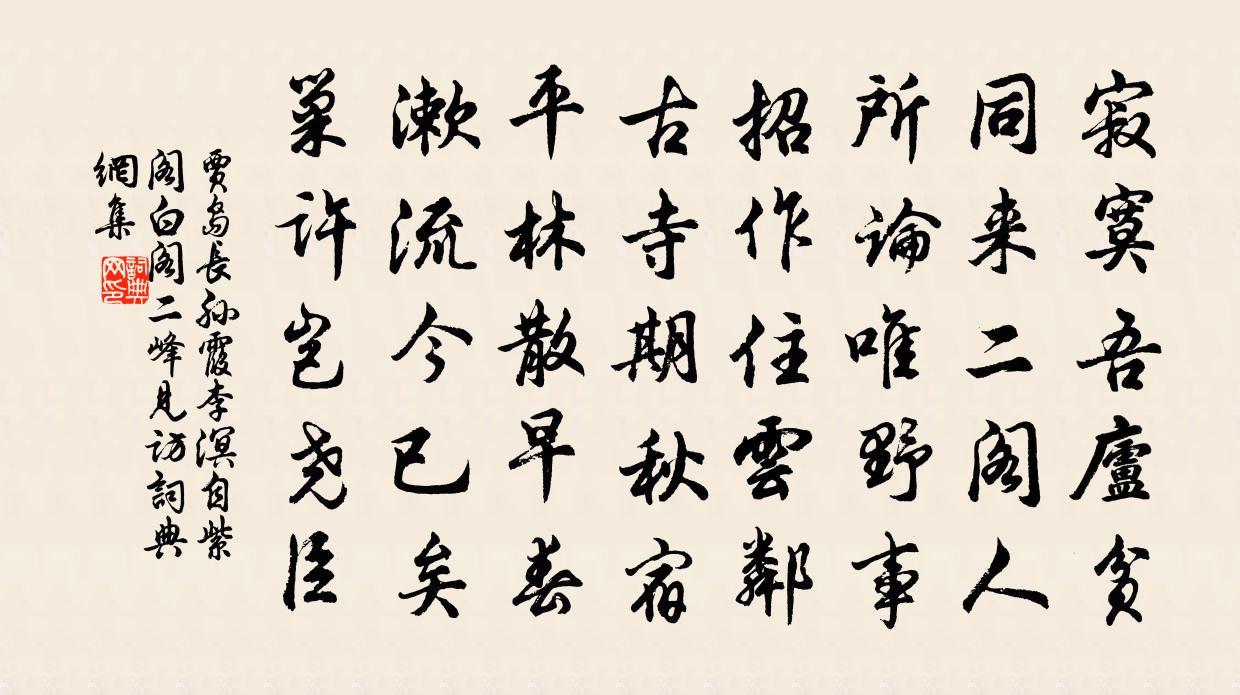 寂寞吾廬貧
同来二阁人
所論唯野事
招作住雲鄰
古寺期秋宿
平林散早春
漱流今已矣
巢許岂尧臣
賈島長孙霞李溟自紫
阁白阁二峰見访詞典
網集
詞典網印